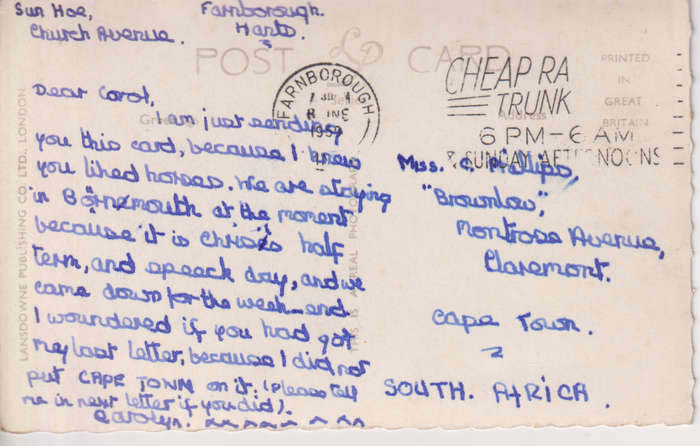 Sun Hoe, Farnborough.
Church Avenue. Hants.
POST CARD
LD
PRINTED
IN
GREAT
BRITAIN
Address
FARNBOROUGH
HANTS
CHEAP RA
TRUNK
6 PM-6 AM
& SUNDAY AFTERNOONS
LANSDOWNE PUBLISHING CO LTD., LONDON.
THIS IS A REAL PHOTOGRAPH
Dear Carol,
I am just sending
you this card, because I know
you liked horses. We are staying
in Bornemouth at the moment
because it is Chris's half
term, and speeck day, and we
came down for the week-end
I woundered if you had got
my last letter, because I did not
put CAPE TOWN on it. (Please tell
me in next letter if you did).
Carolyn.
Miss. C. Phillips,
"Brownlow",
Montrose Avenue,
Claremont.
Cape Town.
SOUTH. AFRICA.